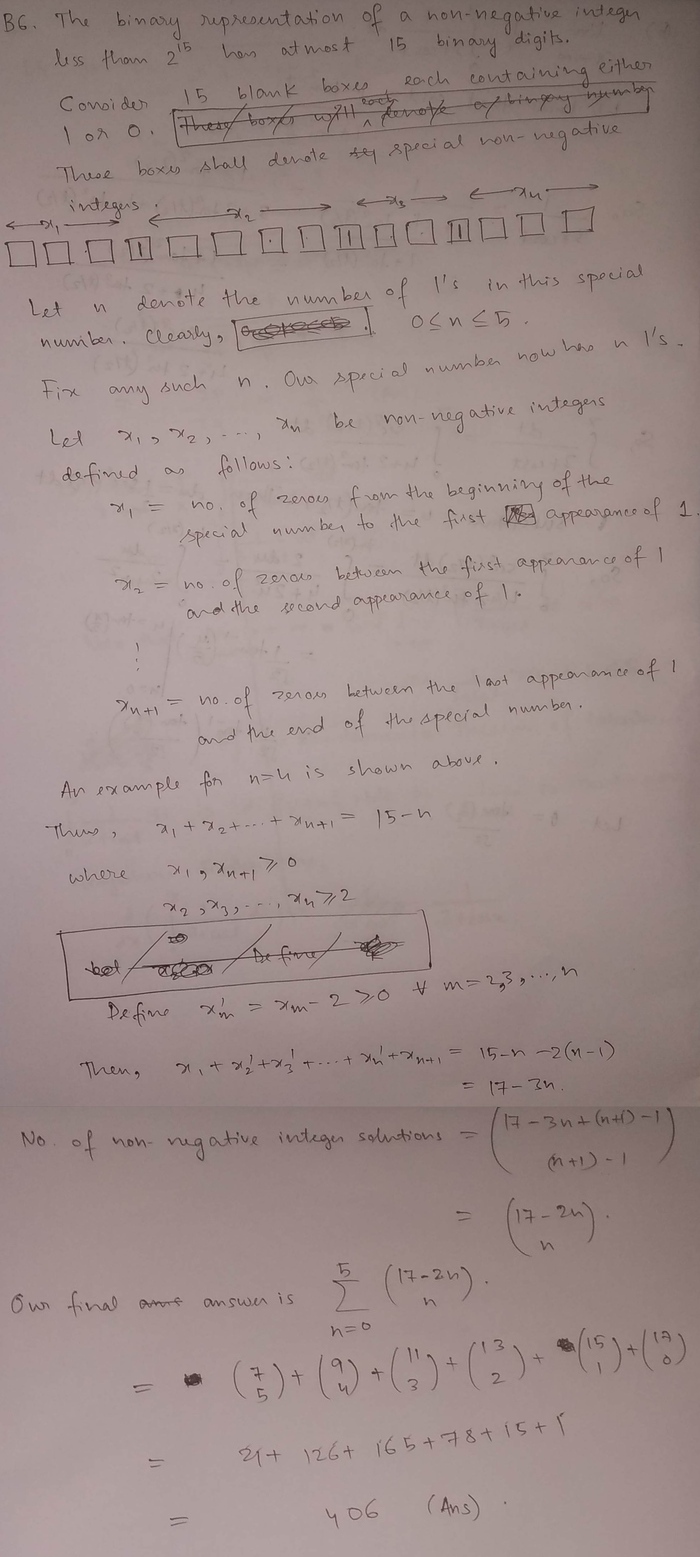 B6. The binary representation of a non-negative integer
less than 2^15 has atmost 15 binary digits.
Consider 15 blank boxes, each containing either
1 or 0. These boxes will each denote a binary number
These boxes shall denote special non-negative
integers.
x₁ x₂ x₃ x₄
1 1 1
Let n denote the number of 1's in this special
number. Clearly, 0 ≤ n ≤ 5.
Fix any such n. Our special number now has n 1's.
Let x₁, x₂, ..., xₙ be non-negative integers
defined as follows:
x₁ = no. of zeroes from the beginning of the
special number to the first appearance of 1.
x₂ = no. of zeroes between the first appearance of 1
and the second appearance of 1.
⋮
xₙ₊₁ = no. of zeroes between the last appearance of 1
and the end of the special number.
An example for n=4 is shown above.
Thus, x₁ + x₂ + ... + xₙ₊₁ = 15-n
where x₁, xₙ₊₁ ≥ 0
x₂, x₃, ..., xₙ ≥ 2
Let Define
Define x'ₘ = xₘ - 2 ≥ 0 ∀ m = 2,3, ..., n
Then, x₁ + x₂' + x₃' + ... + xₙ' + xₙ₊₁ = 15-n-2(n-1)
= 17-3n.
No. of non-negative integer solutions = (17-3n+(n+1)-1 (n+1)-1)
= (17-2n n).
Our final answer is Σ n=0 5 (17-2n n).
= (7 5) + (9 4) + (11 3) + (13 2) + (15 1) + (17 0)
= 21 + 126 + 165 + 78 + 15 + 1
= 406 (Ans).